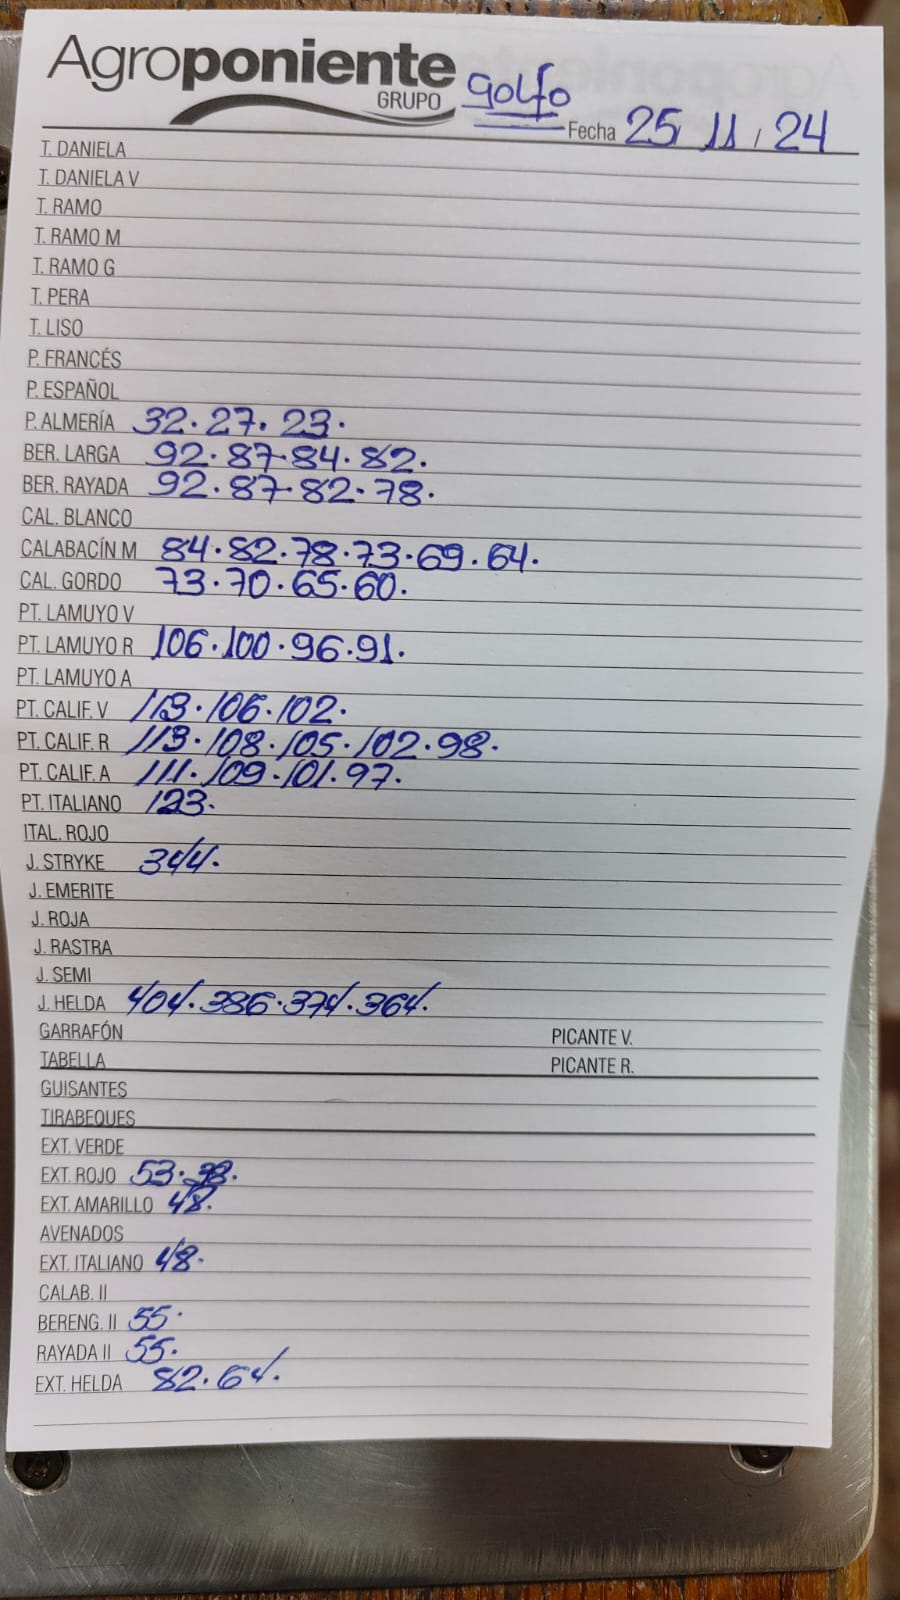 Agroponiente
GRUPO golfo
Fecha 25 / 11 / 24
T. DANIELA
T. DANIELA V
T. RAMO
T. RAMO M
T. RAMO G
T. PERA
T. LISO
P. FRANCÉS
P. ESPAÑOL
P. ALMERÍA 32. 27. 23.
BER. LARGA 92. 87. 84. 82.
BER. RAYADA 92. 87. 82. 78.
CAL. BLANCO
CALABACÍN M 84. 82. 78. 73. 69. 64.
CAL. GORDO 73. 70. 65. 60.
PT. LAMUYO V
PT. LAMUYO R 106. 100. 96. 91.
PT. LAMUYO A
PT. CALIF. V 113. 106. 102.
PT. CALIF. R 113. 108. 105. 102. 98.
PT. CALIF. A 111. 109. 101. 97.
PT. ITALIANO 123.
ITAL. ROJO
J. STRYKE 344.
J. EMERITE
J. ROJA
J. RASTRA
J. SEMI
J. HELDA 404. 386. 374. 364.
GARRAFÓN PICANTE V.
TABELLA PICANTE R.
GUISANTES
TIRABEQUES
EXT. VERDE
EXT. ROJO 53.
EXT. AMARILLO 48.
AVENADOS
EXT. ITALIANO 48.
CALAB. II
BERENG. II 55.
RAYADA II 55.
EXT. HELDA 82. 64.